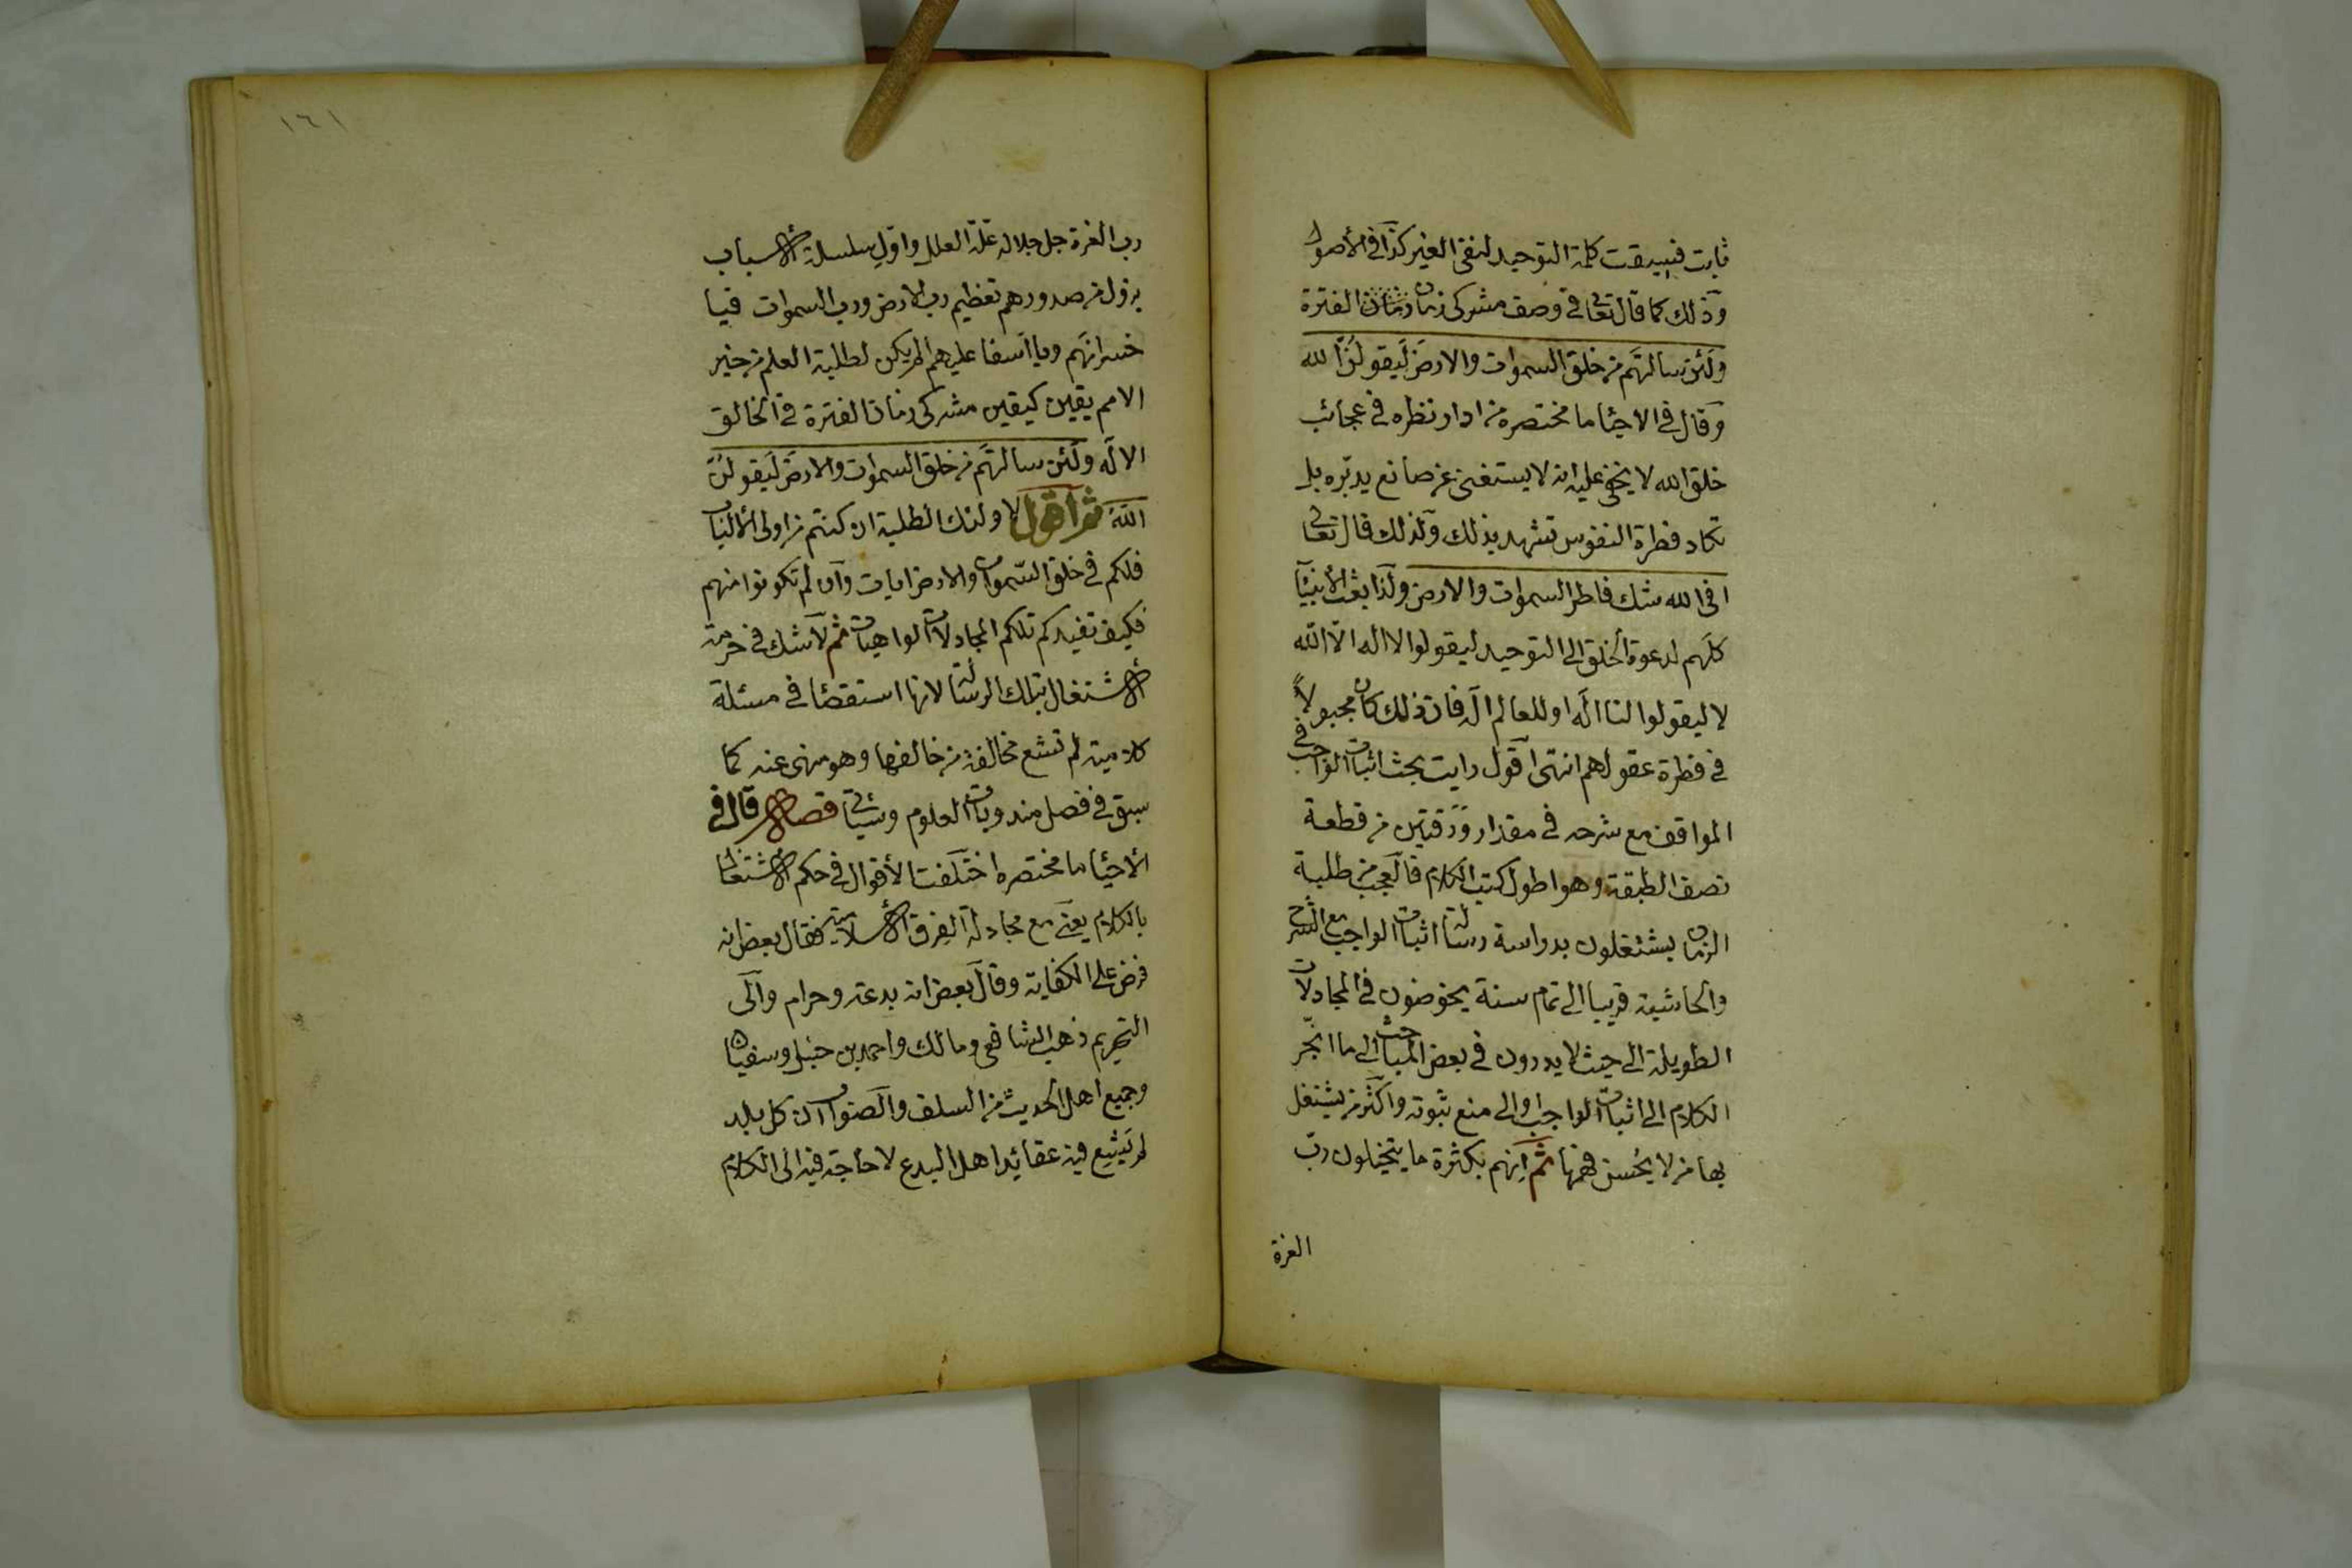 ثابت فسيقت كلمة التوحيد لنفى الغير كذا فى الأصول
وذلك كما قال تعالى فى وصف مشركى زمان زمان الفترة
ولئن سالتهم من خلق السموات والارض ليقولن الله
وقال فى الاحياء ما مختصره من ادار نظره فى عجائب
خلق الله لا يخفى عليه انه لا يستغنى عن صانع يدبّره بل
تكاد فطرة النفوس تشهد بذلك ولذلك قال تعالى
افى الله شك فاطر السموات والارض ولذا بعث الأنبيآء
كلهم لدعوة الخلق الى التوحيد ليقولوا لا اله الّا الله
لا ليقولوا لنا اله او للعالم اله فان ذلك كان مجبولاً
فى فطرة عقولهم انتهى اقول رايت بحث اثبات الواجب فى
المواقف مع شرحه فى مقدار ورقتين من قطعة
نصف الطبقة وهو اطول كتب الكلام فالعجب من طلبة
الزمان يشتغلون بدراسة رسالة اثبات الواجب مع الشرح
والحاشية قريبا الى تمام سنة يخوضون فى المجادلات
الطويلة الى حيث لا يدرون فى بعض المباحث الى ما انجّر
الكلام الى اثبات الواجب او الى منع ثبوته واكثر من يشتغل
بها من لا يُحسن فهمها ثم انهم بكثرة ما يتخيلون ربّ
العزة
١٦١
رب العزة جل جلاله علة العلل واول سلسلة الأسباب
يزول من صدورهم تعظيم رب الارض ورب السموات فيا
خسرانهم ويا اسفا عليهم الم يكن لطلبة العلم من خير
الامم يقين كيقين مشركى زمان الفترة فى الخالق
الاله ولئن سالتهم من خلق السموات والارض ليقولن
الله ثم اقول لاولئك الطلبة ان كنتم من اولى الألباب
فلكم فى خلق السّموات والارض ايات وان لم تكونوا منهم
فكيف تفيدكم تلكم المجادلات الواهيات ثم لا شك فى حرمة
الأشتغال بتلك الرسالة لانها استقصاء فى مسئلة
كلامية لم تشع مخالفة من خالفها وهو منهى عنه كما
سبق فى فصل مندوبات العلوم وسيأتى فصل قال فى
الأحياء ما مختصره اختلفت الأقوال فى حكم الأشتغال
بالكلام يعنى مع مجادلة الفرق الأسلامية فقال بعض انه
فرض على الكفاية وقال بعض انه بدعة وحرام والى
التحريم ذهب الشافعى ومالك واحمد بن حنبل وسفيان
وجميع اهل الحديث من السلف والصواب ان كل بلد
لم يشيع فيه عقائد اهل البدع لا حاجة فيه الى الكلام